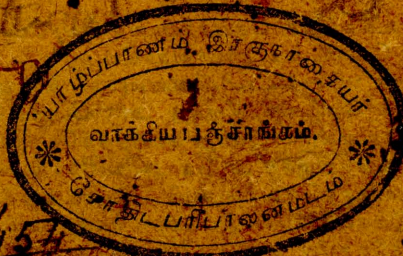 யாழ்ப்பாணம் இரகுநாதையர்
வாக்கிய பஞ்சாங்கம்.
சோதிடபரிபாலனமடம்